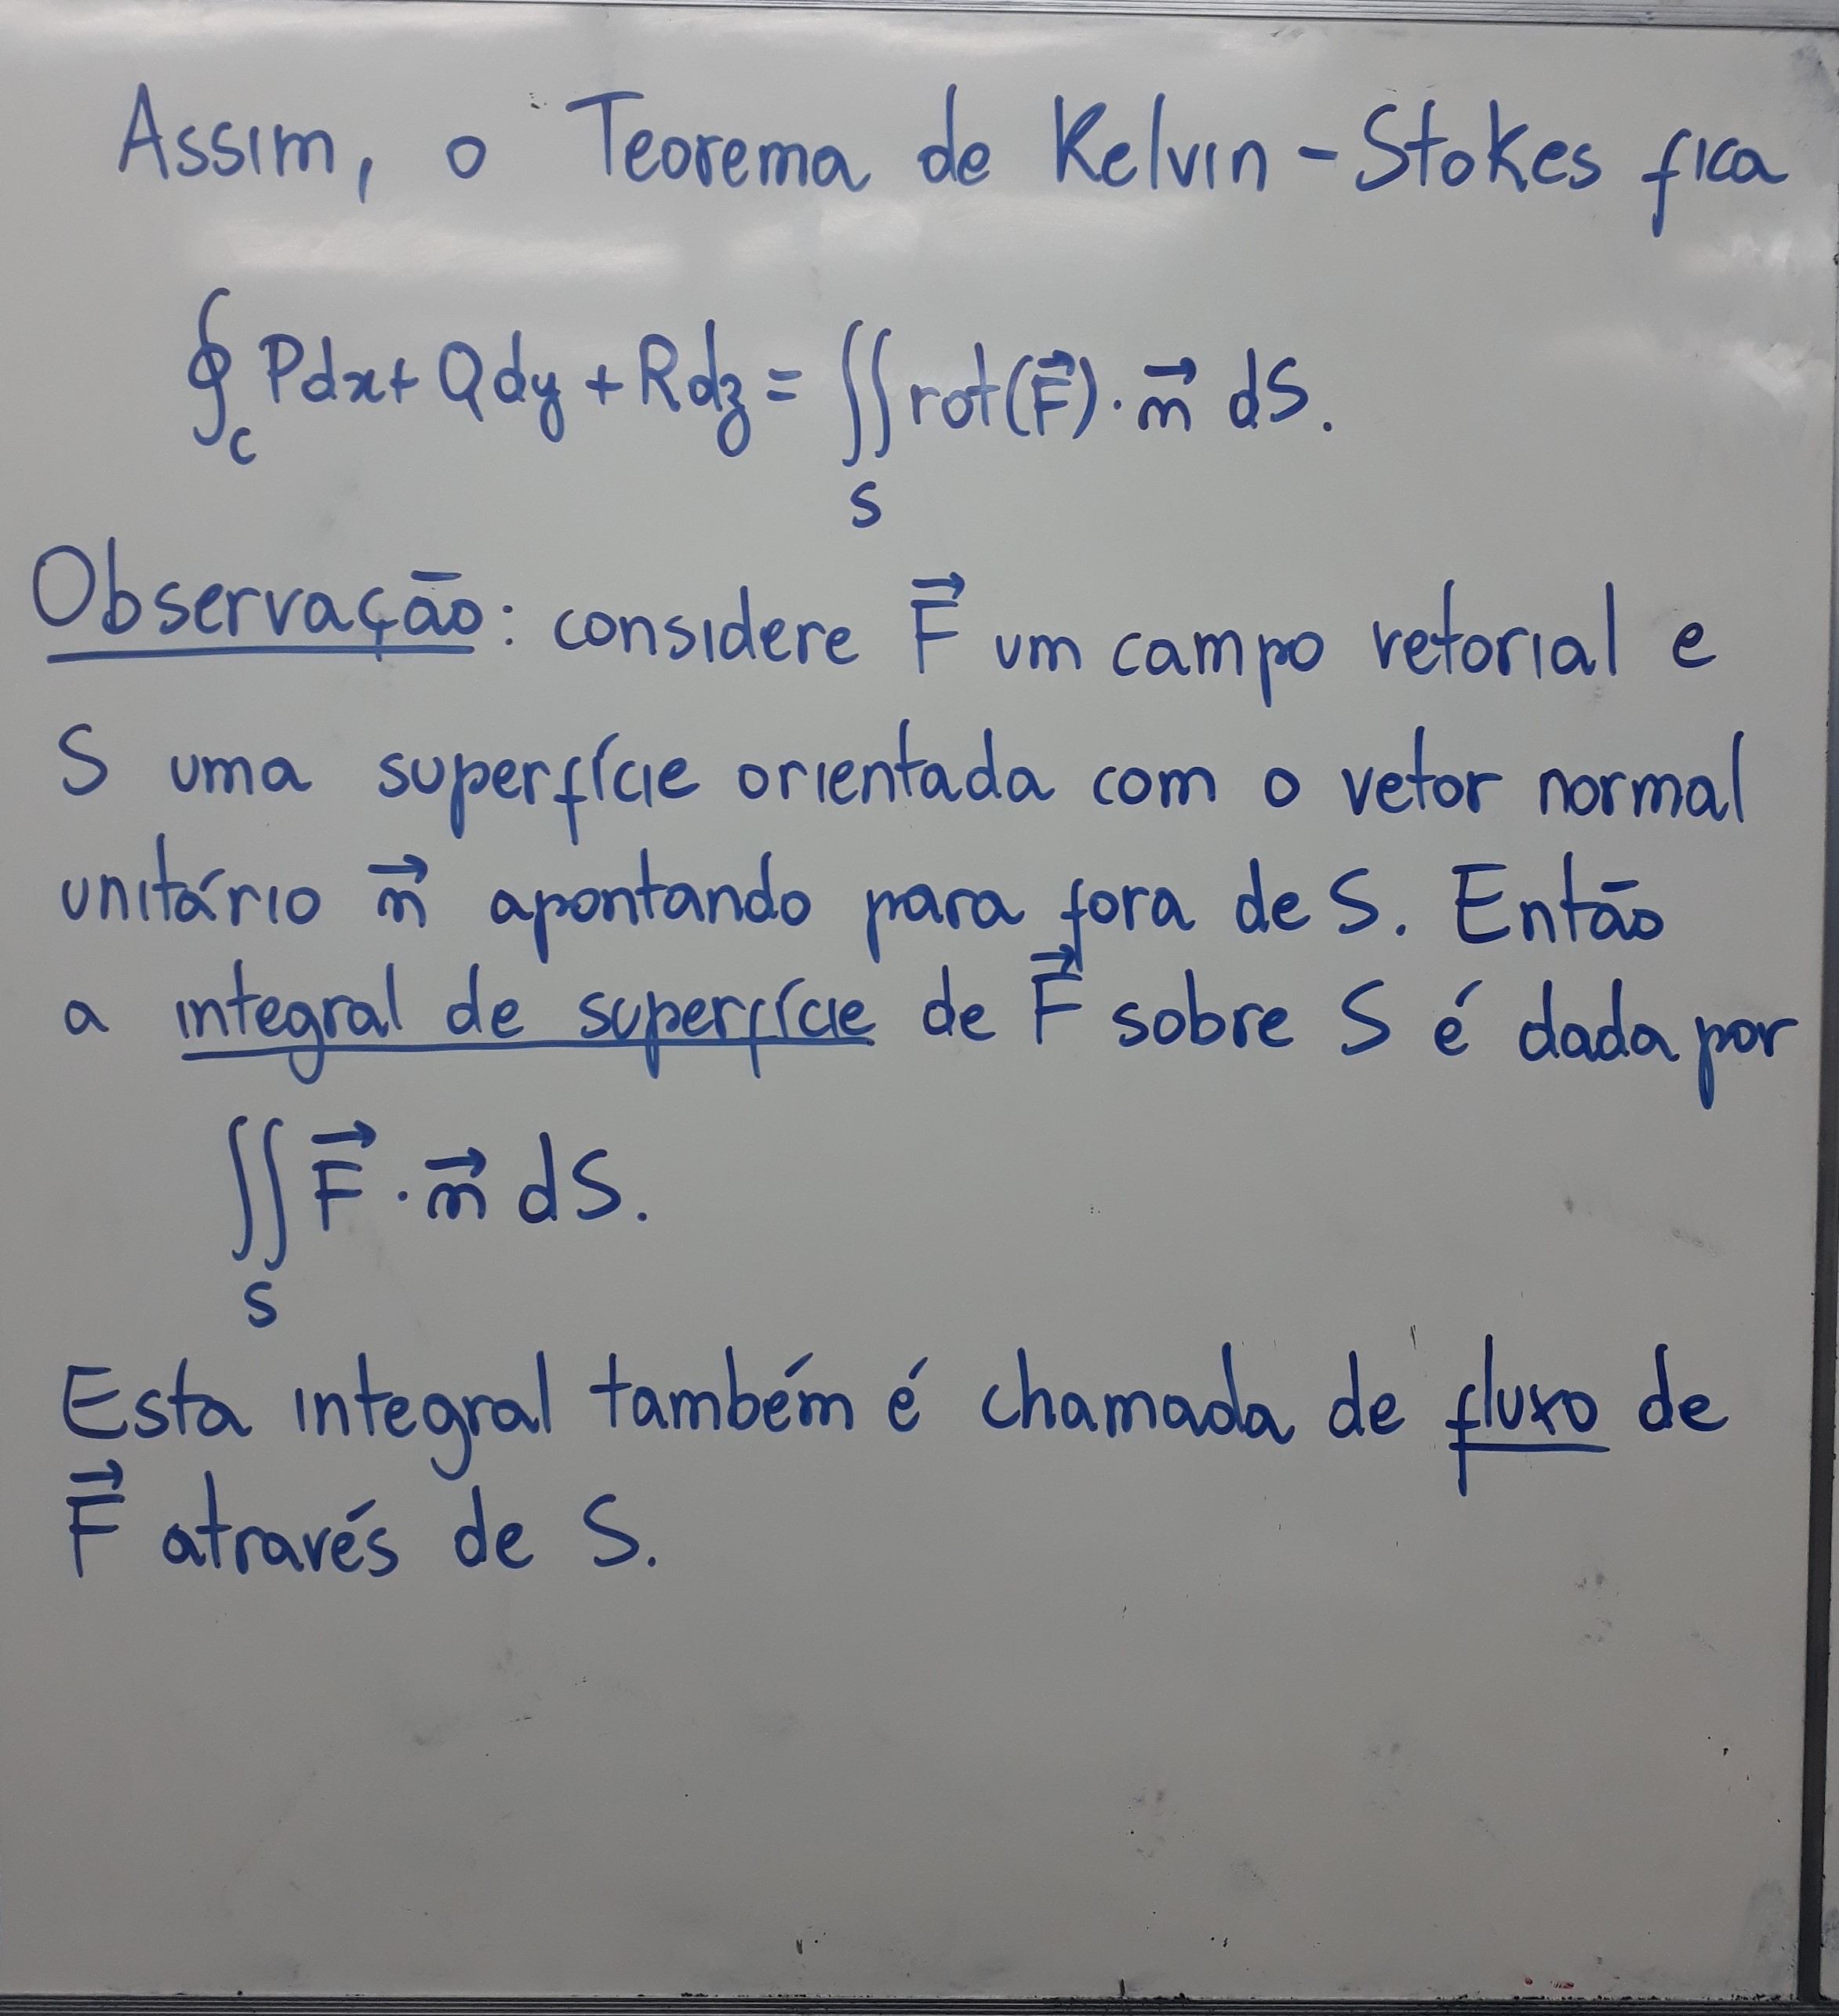 Assim, o Teorema de Kelvin-Stokes fica
∮_C Pdx + Qdy + Rdz = ∬_S rot(F⃗)·n⃗ dS.
Observação: considere F⃗ um campo vetorial e
S uma superfície orientada com o vetor normal
unitário n⃗ apontando para fora de S. Então
a integral de superfície de F⃗ sobre S é dada por
∬_S F⃗·n⃗ dS.
Esta integral também é chamada de fluxo de
F⃗ através de S.